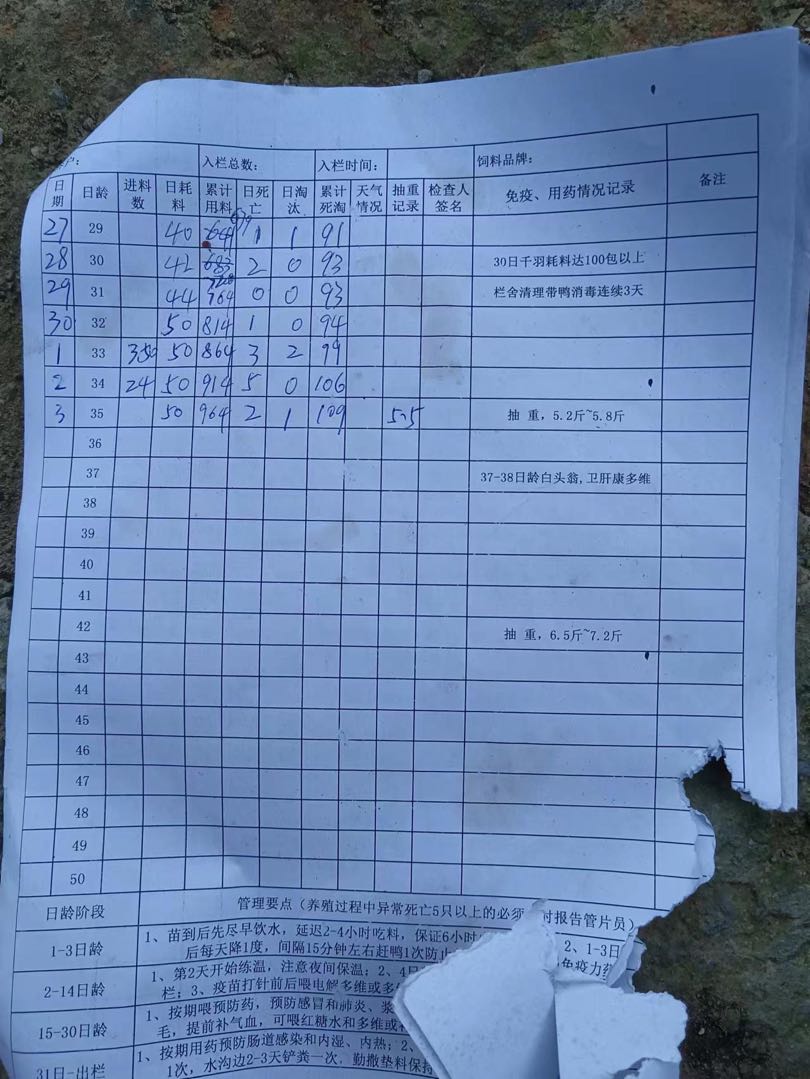 户: 入栏总数: 入栏时间: 饲料品牌:
日期 日龄 进料数 日耗料 累计用料 日死亡 日淘汰 累计死淘 天气情况 抽重记录 检查人签名 免疫、用药情况记录 备注
27 29 40 1 1 91
28 30 42 683 2 0 93 30日千羽耗料达100包以上
29 31 44 764 0 0 93 栏舍清理带鸭消毒连续3天
30 32 50 814 1 0 94
1 33 350 50 864 3 2 99
2 34 24 50 914 5 0 106
3 35 50 964 2 1 109 5.5 抽 重, 5.2斤~5.8斤
36
37 37-38日龄白头翁,卫肝康多维
38
39
40
41
42 抽 重, 6.5斤~7.2斤
43
44
45
46
47
48
49
50
日龄阶段 管理要点（养殖过程中异常死亡5只以上的必须 时报告管片员）
1-3日龄 1、苗到后先尽早饮水，延迟2-4小时吃料，保证6小时 2、1-3日
后每天降1度，间隔15分钟左右赶鸭1次防止 免疫力
2-14日龄 1、第2天开始练温，注意夜间保温；2、4日
栏；3、疫苗打针前后喂电解多维或多
15-30日龄 1、按期喂预防药，预防感冒和肺炎、浆
毛，提前补气血，可喂红糖水和多维或
31日-出栏 1、按期用药预防肠道感染和内湿、内热；2、
1次，水沟边2-3天铲粪一次，勤撒垫料保持